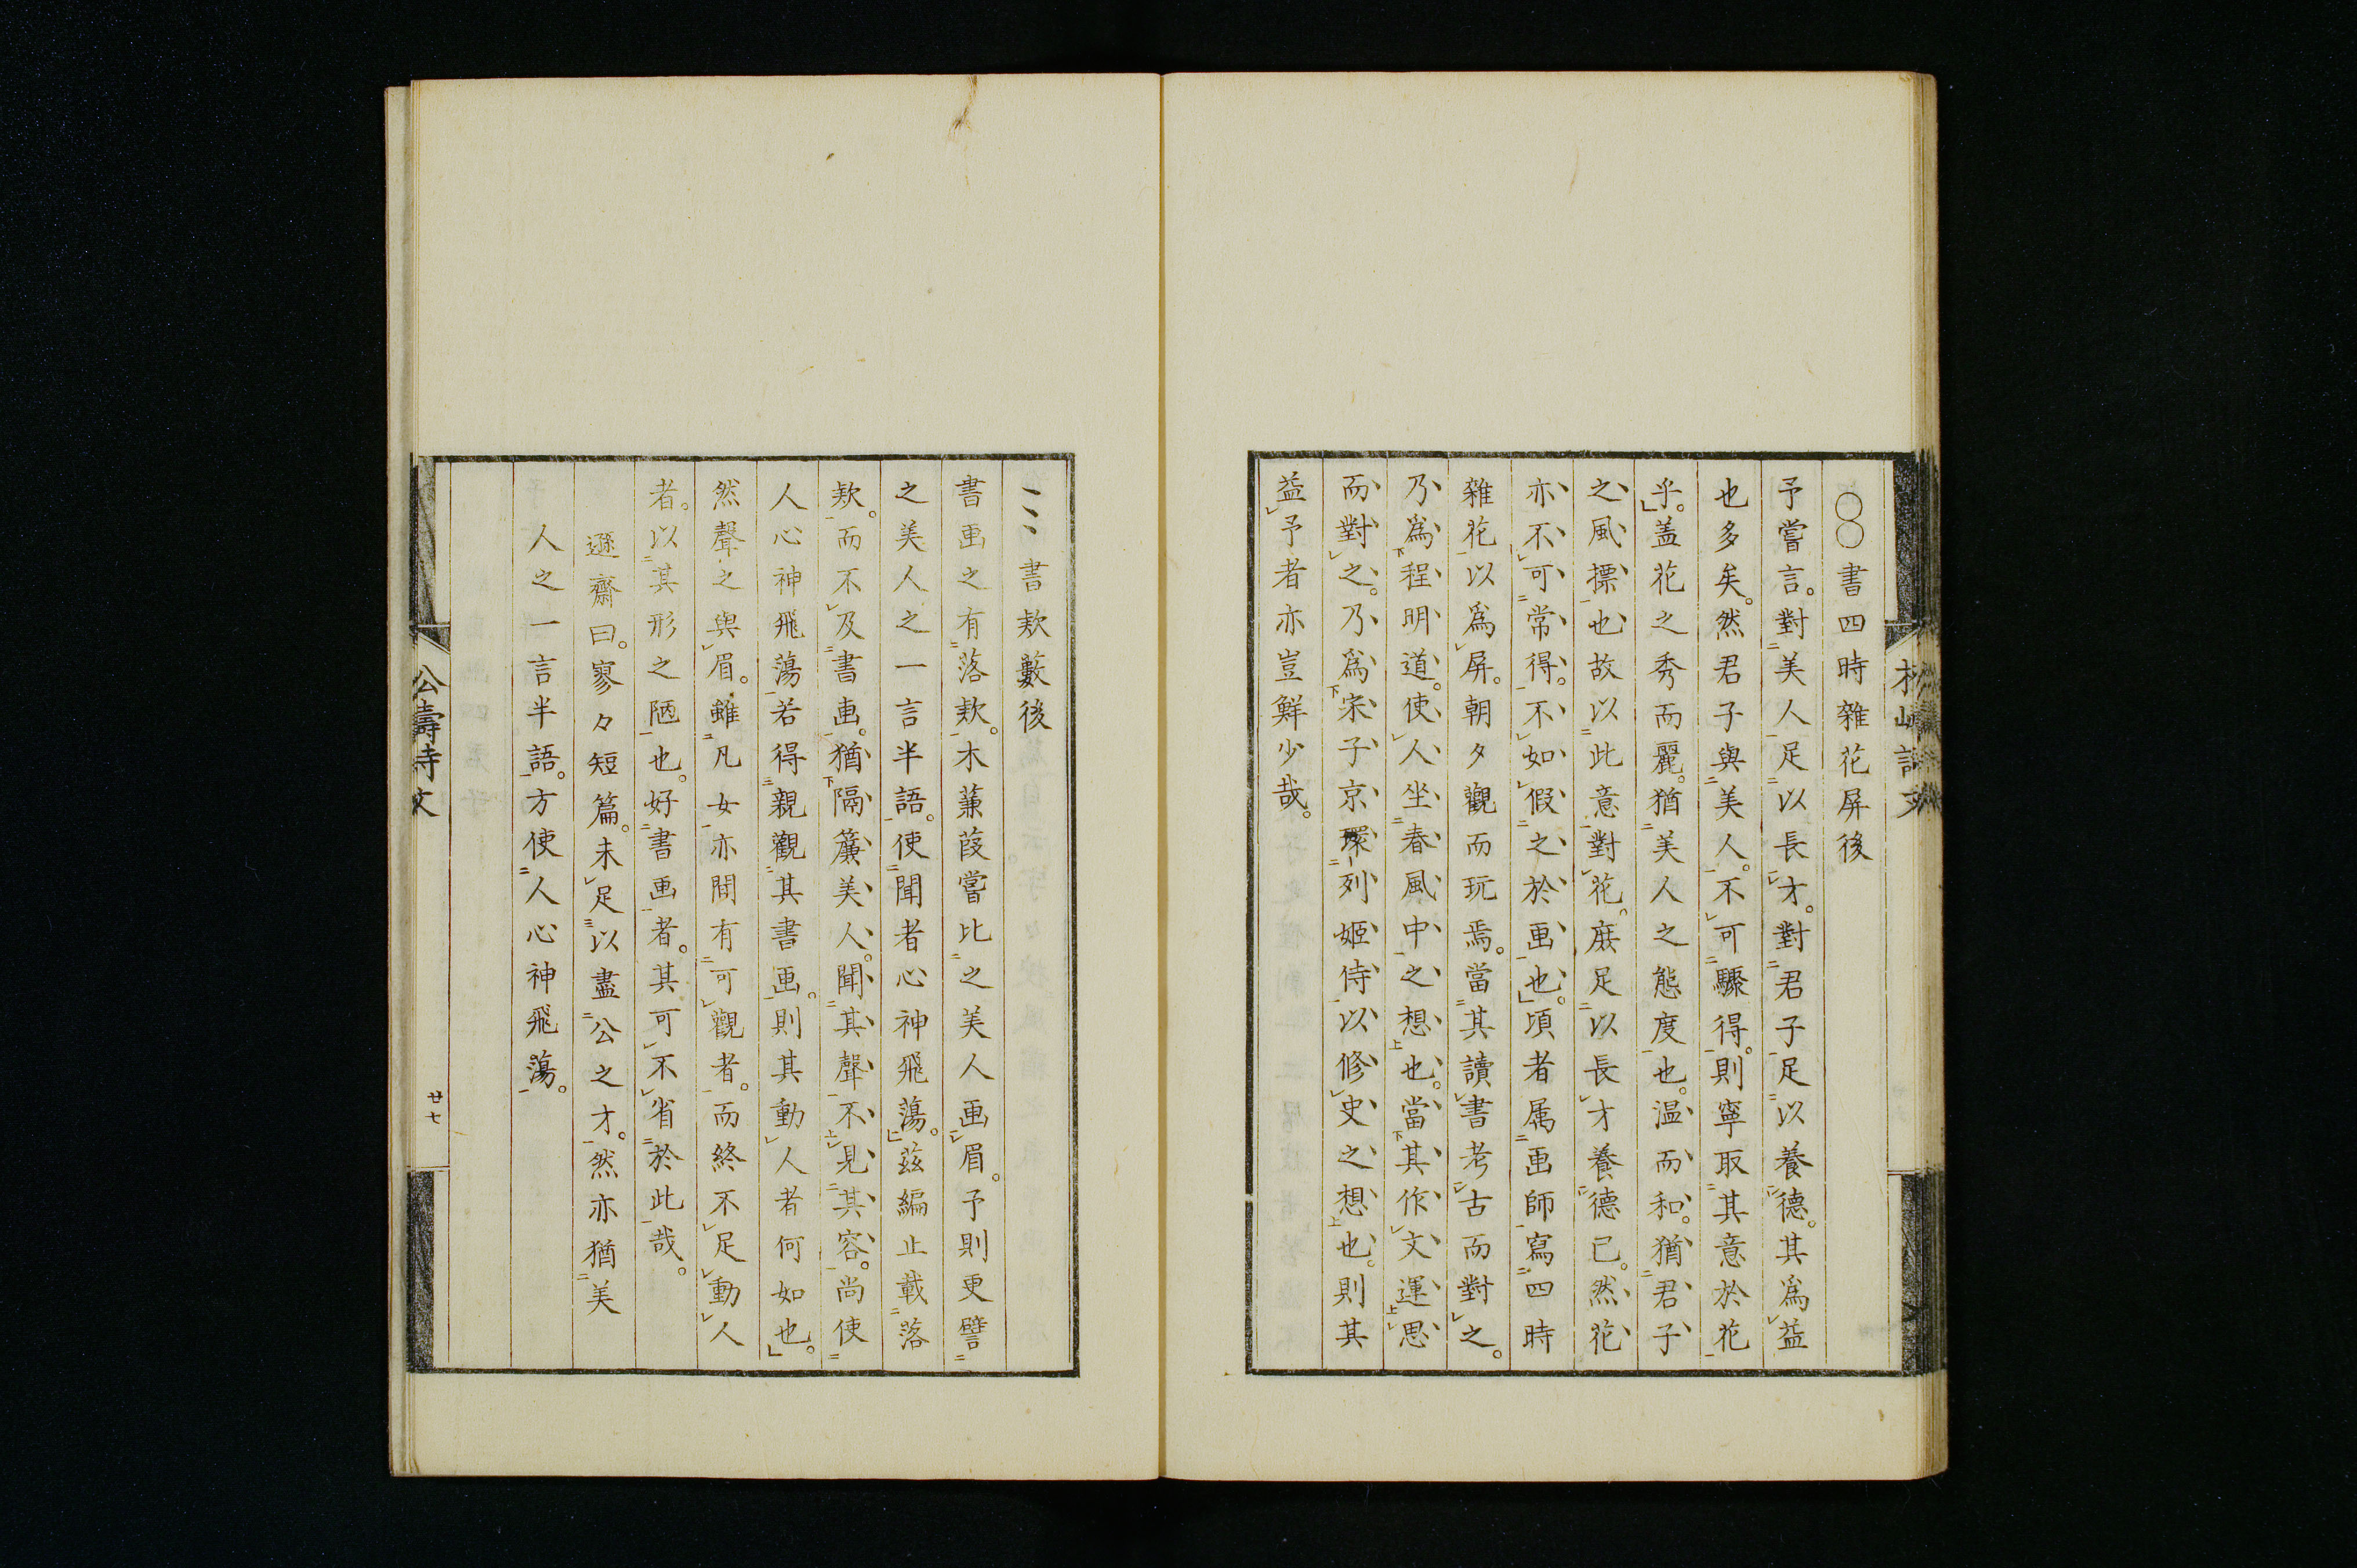 〇〇書四時雜花屏後
予嘗言。對美人足以長才。對君子足以養德。其爲益
也多矣。然君子與美人。不可驟得。則寧取其意於花
乎。盖花之秀而麗。猶美人之態度也。温而和。猶君子
之風摽也故以此意對花。庶足以長才養德已。然花
亦不可常得。不如假之於画也。頃者属画師寫四時
雜花以爲屏。朝夕觀而玩焉。當其讀書考古而對之。
乃爲程明道。使人坐春風中之想也。當其作文運思
而對之。乃爲宋子京環列姬侍以修史之想也。則其
益予者亦豈鮮少哉。
書款藪後
書画之有落款。木蒹葭嘗比之美人画眉。予則更譬
之美人之一言半語。使聞者心神飛蕩。茲編止載落
款。而不及書画。猶隔簾美人。聞其聲不見其容。尚使
人心神飛蕩若得親觀其書画。則其動人者何如也。
然聲之與眉。雖凡女亦間有可觀者。而終不足動人
者。以其形之陋也。好書画者。其可不省於此哉。
遜齋曰。寥々短篇。未足以盡公之才。然亦猶美
人之一言半語。方使人心神飛蕩。
公壽詩文
廿七